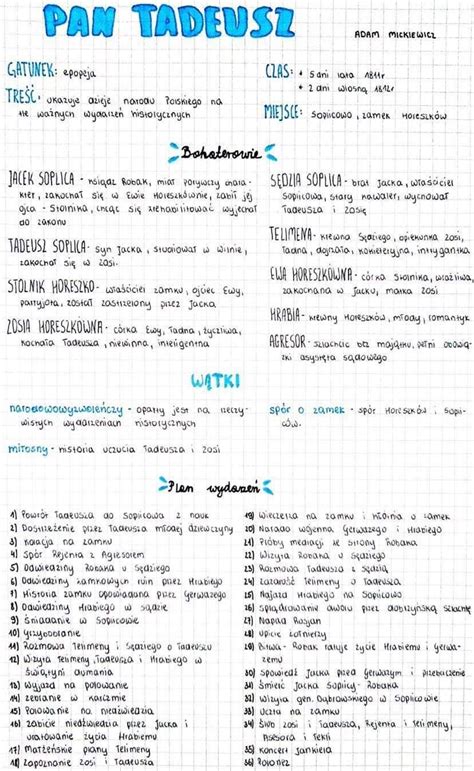 PAN TADEUSZ
ADAM MICKIEWICZ
GATUNEK: epopeja
TREŚĆ: ukazuje dzieje narodu Polskiego na
tle ważnych wydarzeń historycznych
CZAS: • 5 dni lata 1811r
• 2 dni wiosną 1812r
MIEJSCE: Soplicowo, zamek Horeszków
Bohaterowie
JACEK SOPLICA - ksiądz Robak, miał porywczy chara-
kter, zakochał się w Ewie Horeszkównie, zabił jej
ojca - Stolnika, chcąc się zrehabilitować wyjechał
do zakonu
TADEUSZ SOPLICA - syn Jacka, studiował w Wilnie,
zakochał się w Zosi.
STOLNIK HORESZKO - właściciel zamku, ojciec Ewy,
patryjota, został zastrzelony przez Jacka
ZOSIA HORESZKÓWNA - córka Ewy, ładna, życzliwa,
kochała Tadeusza, niewinna, inteligentna
SĘDZIA SOPLICA - brat Jacka, właściciel
Soplicowa, stary kawaler, wychował
Tadeusza i Zosię
TELIMENA - krewna Sędziego, opiekunka Zosi,
ładna, dojrzała, kokieteryjna, intrygantka
EWA HORESZKÓWNA - córka Stolnika, wrażliwa,
zakochana w Jacku, matka Zosi
HRABIA - krewny Horeszków, młody, romantyk
AGRESOR - szlachcic bez majątku, pełni obowią-
zki asysyteta sądowego
WĄTKI
narodowowyzwoleńczy - oparty jest na rzeczy-
wistych wydarzeniach historycznych
miłosny - historia uczucia Tadeusza i Zosi
spór o zamek - spór Horeszków i Sopli-
ców.
Plan wydarzeń
1) Powrót Tadeusza do Soplicowa z nauk
2) Dostrzeżenie przez Tadeusza młodej dziewczyny
3) Kolacja na zamku
4) Spór Rejenta z Agresorem
5) Odwiedziny Robaka u Sędziego
6) Odwiedziny zamkowych ruin przez Hrabiego
7) Historia zamku opowiadana przez Gerwazego
8) Odwiedziny Hrabiego w sadzie
9) Śniadanie w Soplicowie
10) Grzybobranie
11) Rozmowa Telimeny i Sędziego o Tadeuszu
12) Wizyta Telimeny, Tadeusza i Hrabiego w
Świątyni dumania
13) Wyjazd na polowanie
14) Zebranie w karczmie
15) Polowanie na niedźwiedzia
16) Zabicie niedźwiedzia przez Jacka i
uratowanie życia Hrabiemu
17) Małżeńskie plany Telimeny
18) Zapoznanie Zosi i Tadeusza
19) Wieczerza na zamku i kłótnia o zamek
20) Narada wojenna Gerwazego i Hrabiego
21) Próby mediacji ze strony Robaka
22) Wizyta Robaka u Sędziego
23) Rozmowa Tadeusza z Sędzią
24) Zazdrość Telimeny o Tadeusza
25) Najazd Hrabiego na Soplicowo
26) Splądrowanie dworu przez dobrzyńską szlachtę
27) Napad Rosjan
28) Upicie żołnierzy
29) Bitwa - Robak ratuje życie Hrabiemu i Gerwa-
zemu
30) Spowiedź Jacka przed Gerwazym i przebaczenie
31) Śmierć Jacka Soplicy - Robaka
32) Wizyta gen. Dąbrowskiego w Soplicowie
33) Uczta na zamku
34) Ślub Zosi i Tadeusza, Rejenta i Telimeny,
Asesora i Tekli
35) Koncert Jankiela
36) Polonez